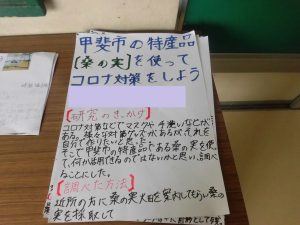 甲斐市の特産品
[桑の実]を使って
コロナ対策をしよう
[研究のきっかけ]
コロナ対策などでマスクや手洗いなどが
ある。様々な対策グッズがあるがそれを
自分で作りたいと思い
そこで甲斐市の特産品である桑の実を使っ
て、何か活用できるのではないかと思い、調べ
ることにした。
[調べた方法]
近所の方に桑の実畑を案内してもらい桑の
実を採取して